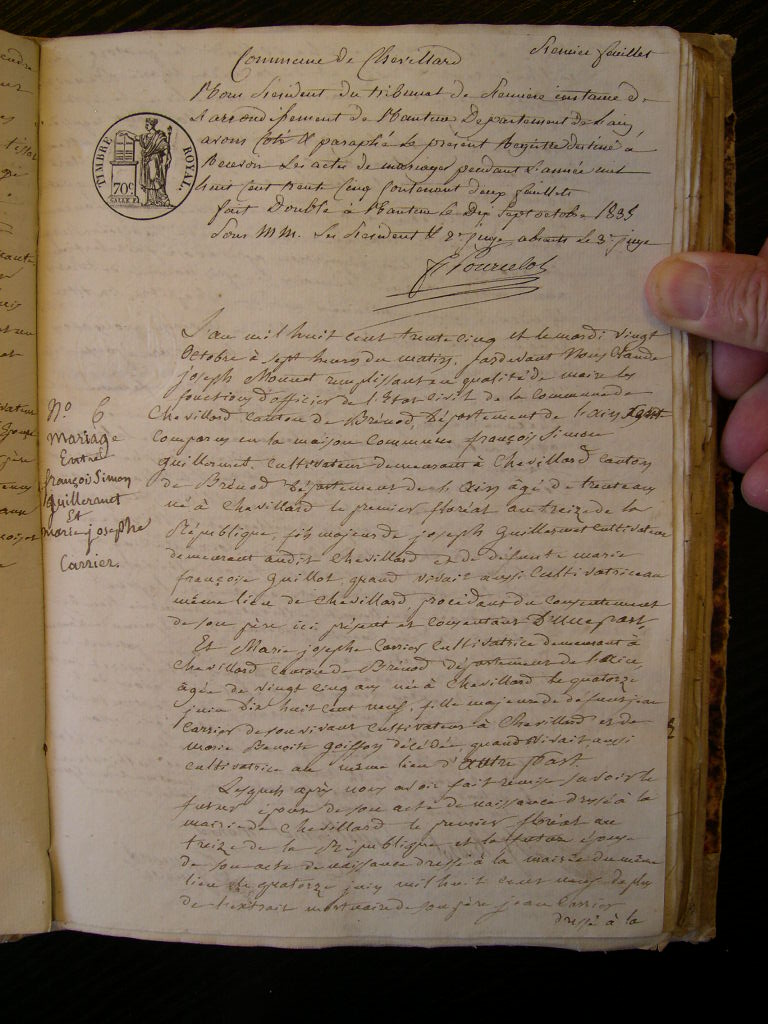 Commune de Chevillard
premier feuillet
Nous président du tribunal de première instance de
L'arrondissement de Nantua Département de L'ain,
avons coté & paraphé le présent Registre destiné à
Recevoir les actes de mariages pendant l'année mil
huit cent trente cinq contenant deux feuillets
fait Double à Nantua le Dix Sept octobre 1835
Pour MM. les président & 2e juge absents le 3e juge
TIMBRE ROYAL.
70c
L'an mil huit cent trente cinq et le mardi vingt
Octobre à sept heures du matin, pardevant Nous Claude
joseph Monnet remplissant en qualité de maire les
fonctions d'officier de l'Etat civil de la Commune de
Chevillard canton de Brénod, Département de l'ain
Comparu en la maison Commune françois Simon
guillermet, cultivateur demeurant à Chevillard canton
de Brénod Département de l'Ain âgé de trente ans
né à Chevillard le premier floréal an treize de la
République, fils majeur de joseph guillermet cultivateur
demeurant audit Chevillard et de défunte marie
françoise guillot quand vivait aussi cultivatrice au
même lieu de Chevillard, procédant du consentement
de son père ici présent et consentant D'une part,
Et Marie josephe Carrier cultivatrice demeurant à
Chevillard canton de Brénod Département de l'ain,
âgée de vingt cinq ans née à Chevillard le quatorze
juin dix huit cent neuf, fille majeure de défunt jean
Carrier de son vivant cultivateur à Chevillard et de
marie Benoite goiffon décédée, quand vivait aussi
cultivatrice au même lieu d'autre part
Lesquels après nous avoir fait remise savoir le
futur époux de son acte de naissance dressé à la
mairie de Chevillard le premier floréal an
treize de la République et la future épouse
de son acte de naissance dressé à la mairie du même
lieu le quatorze juin mil huit cent neuf de plus
de l'extrait mortuaire de son père jean Carrier
dressé à la
No 6
Mariage
Entre
françois Simon
guillermet
Et
marie josephe
Carrier.